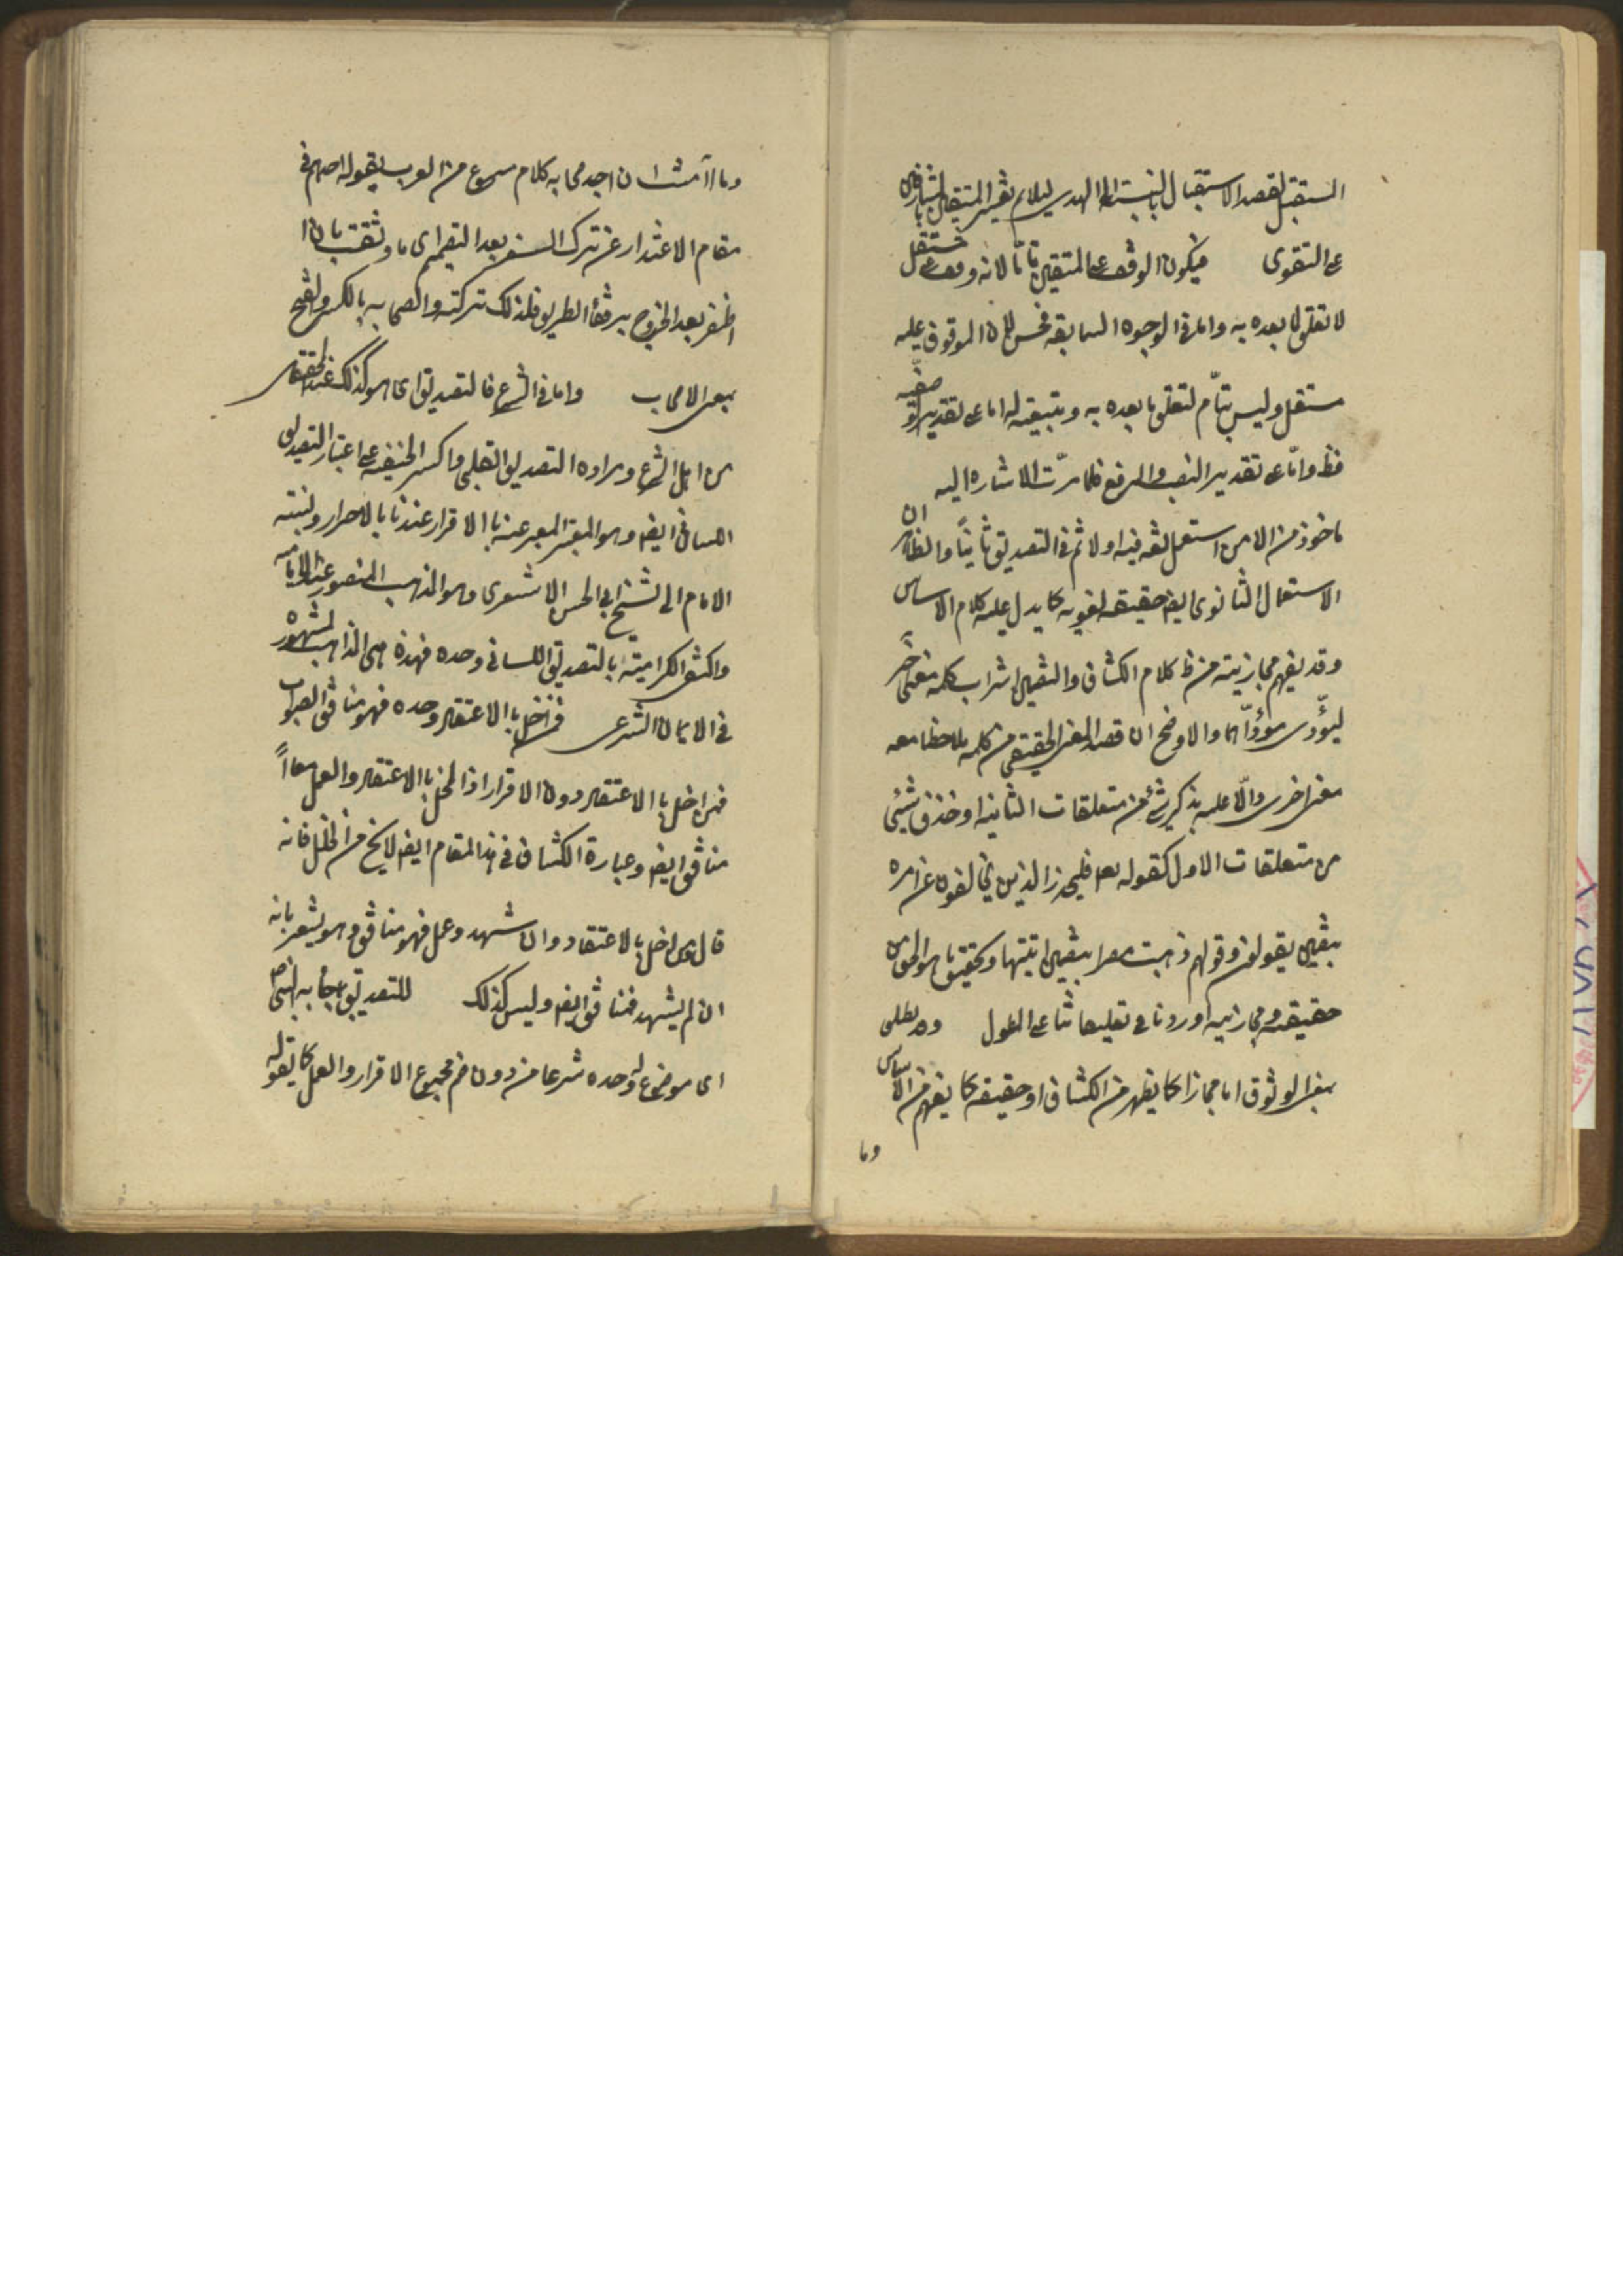 المستقبل لقصد الاستقبال بالنسبة الى الهدى ليلايم تفسير المتقين بالمشارفين
على التقوى فيكون الوقف على المتقين تامّا لانه وقف على مستقل
لا تعلق لما بعده به واما في الوجوه السابقة فحسن لان الموقوف عليه
مستقل وليس بتامّ لتعلق ما بعده به وتبعيته له اما على تقدير الوصفية
فظ وامّا على تقدير النصب والرفع فلما مرّت الاشارة اليه
ماخوذ من الامن استعمل لغة فيه اولا ثم في التصديق ثانيًا والظاهر ان
الاستعمال الثانوى ايض حقيقة لغوية كما يدل عليه كلام الاساس
وقد يفهم مجازيته من ظ كلام الكشاف والتضمين اشراب كلمة معنى اخرى
ليؤدّى مؤدّاهما والاوضح انه قصد المعنى الحقيقى من كلمة ملاحظا معه
معنى اخرى دالّا عليه بذكر شئ من متعلقات الثانية او حذف شيئى
من متعلقات الاول كقوله تع فليحذر الذين يخالفون عن امره
بتضمين يقولون وقولهم ذهبت
حقيقته ومجازيته اوردناه في تعليقاتنا على المطول وقد يطلق
بمعنى الوثوق اما مجازا كما يظهر من الكشاف او حقيقة كما يفهم من الاساس
وما
وما آمنت ان اجد صحابة كلام مسموع من العرب يقوله احدهم في
مقام الاعتذار عن ترك السفر بعد التصميم اى ما وثقت بان
اظفر بعد الخروج برفقاء الطريق فلذلك تركته والصحابه بالكسر والفتح
بمعنى الاصحاب واما في الشرع فالتصديق اى هو كذلك عند المحققين
من اهل الشرع ومراده التصديق القلبى واكثر الحنفية على اعتبار التصديق
اللسانى ايض وهو المعبر عنه بالاقرار ونسبته
الامام الى الشيخ ابى الحسن الاشعرى وهو المذهب المنصور عند الامامية
واكتفى الكرامية بالتصديق اللسانى وحده فهذه هى المذاهب المشهورة
في الايمان الشرعى فمن اخل بالاعتقاد وحده فهو منافق الصواب
فمن اخل بالاعتقاد دون الاقرار اذ المخل بالاعتقاد والعمل معاً
منافق ايض وعبارة الكشاف في هذا المقام ايض لا يخ من الخلل فانه
قال ومن اخل بالاعتقاد وان شهد وعمل فهو منافق وهو يشعر بانه
ان لم يشهد فمنافق ايض وليس كذلك للتصديق
اى موضوع له وحده شرعا من دون ضم مجموع الاقرار والعمل كما يقوله